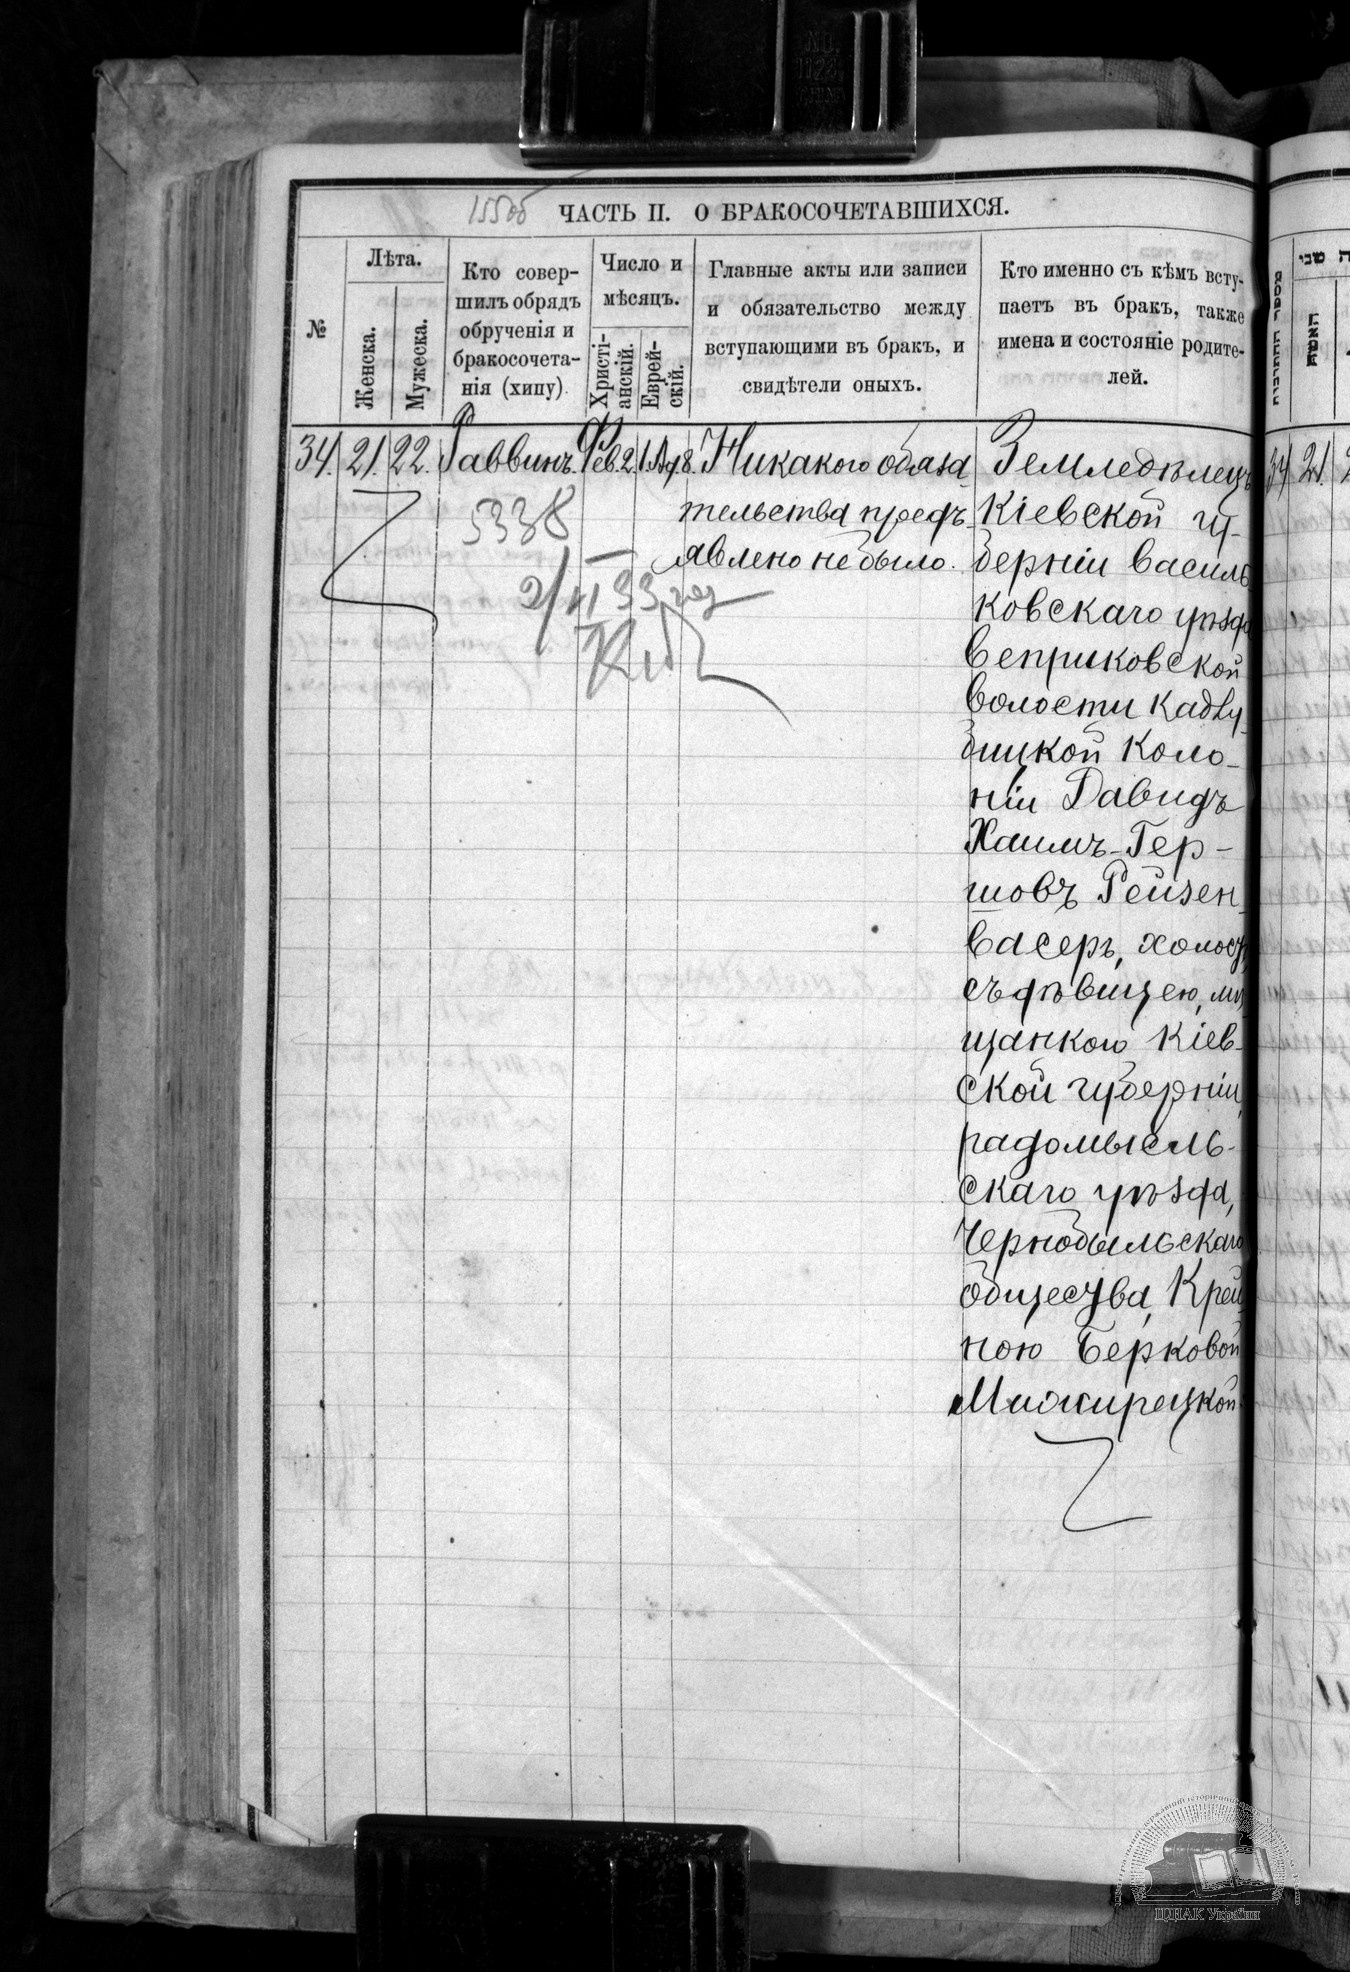 155об
ЧАСТЬ II. О БРАКОСОЧЕТАВШИХСЯ.
№
Лѣта.
Женска.
Мужеска.
Кто совер-
шилъ обрядъ
обрученія и
бракосочета-
нія (хипу)
Число и
мѣсяцъ.
Христі-
анскій.
Еврей-
скій.
Главные акты или записи
и обязательство между
вступающими въ бракъ, и
свидѣтели оныхъ.
Кто именно съ кѣмъ всту-
паетъ въ бракъ, также
имена и состояніе родите-
лей.
34. 21. 22. Раввинъ. Фев. 2.
Никакого обяза
тельства предъ-
явлено не было.
5338
Земледѣлецъ
Кіевской гу-
берніи Василь
ковскаго уѣзда
Веприковской
волости Кадлу-
бицкой Коло-
ніи Давидъ
Хаимъ-Гер-
шовъ Рейзен-
васеръ, холост,
съ дѣвицею, мѣ
щанкою Кіев-
ской губерніи,
радомысль-
скаго уѣзда,
Чернобыльскаго
общества, Крей
ною Берковой
Мижирецкой
שני
האשה
34 21.
ЦДІАК України